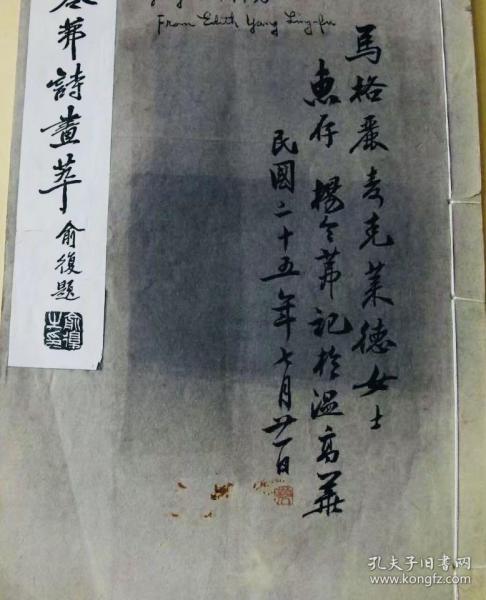 From Edith Yang Ling-fu
馬格麗麥克萊德女士
惠存 楊令茀記於溫哥華
民國二十五年七月廿一日
令茀詩畫萃
俞復題
孔夫子旧书网
kongfz.com